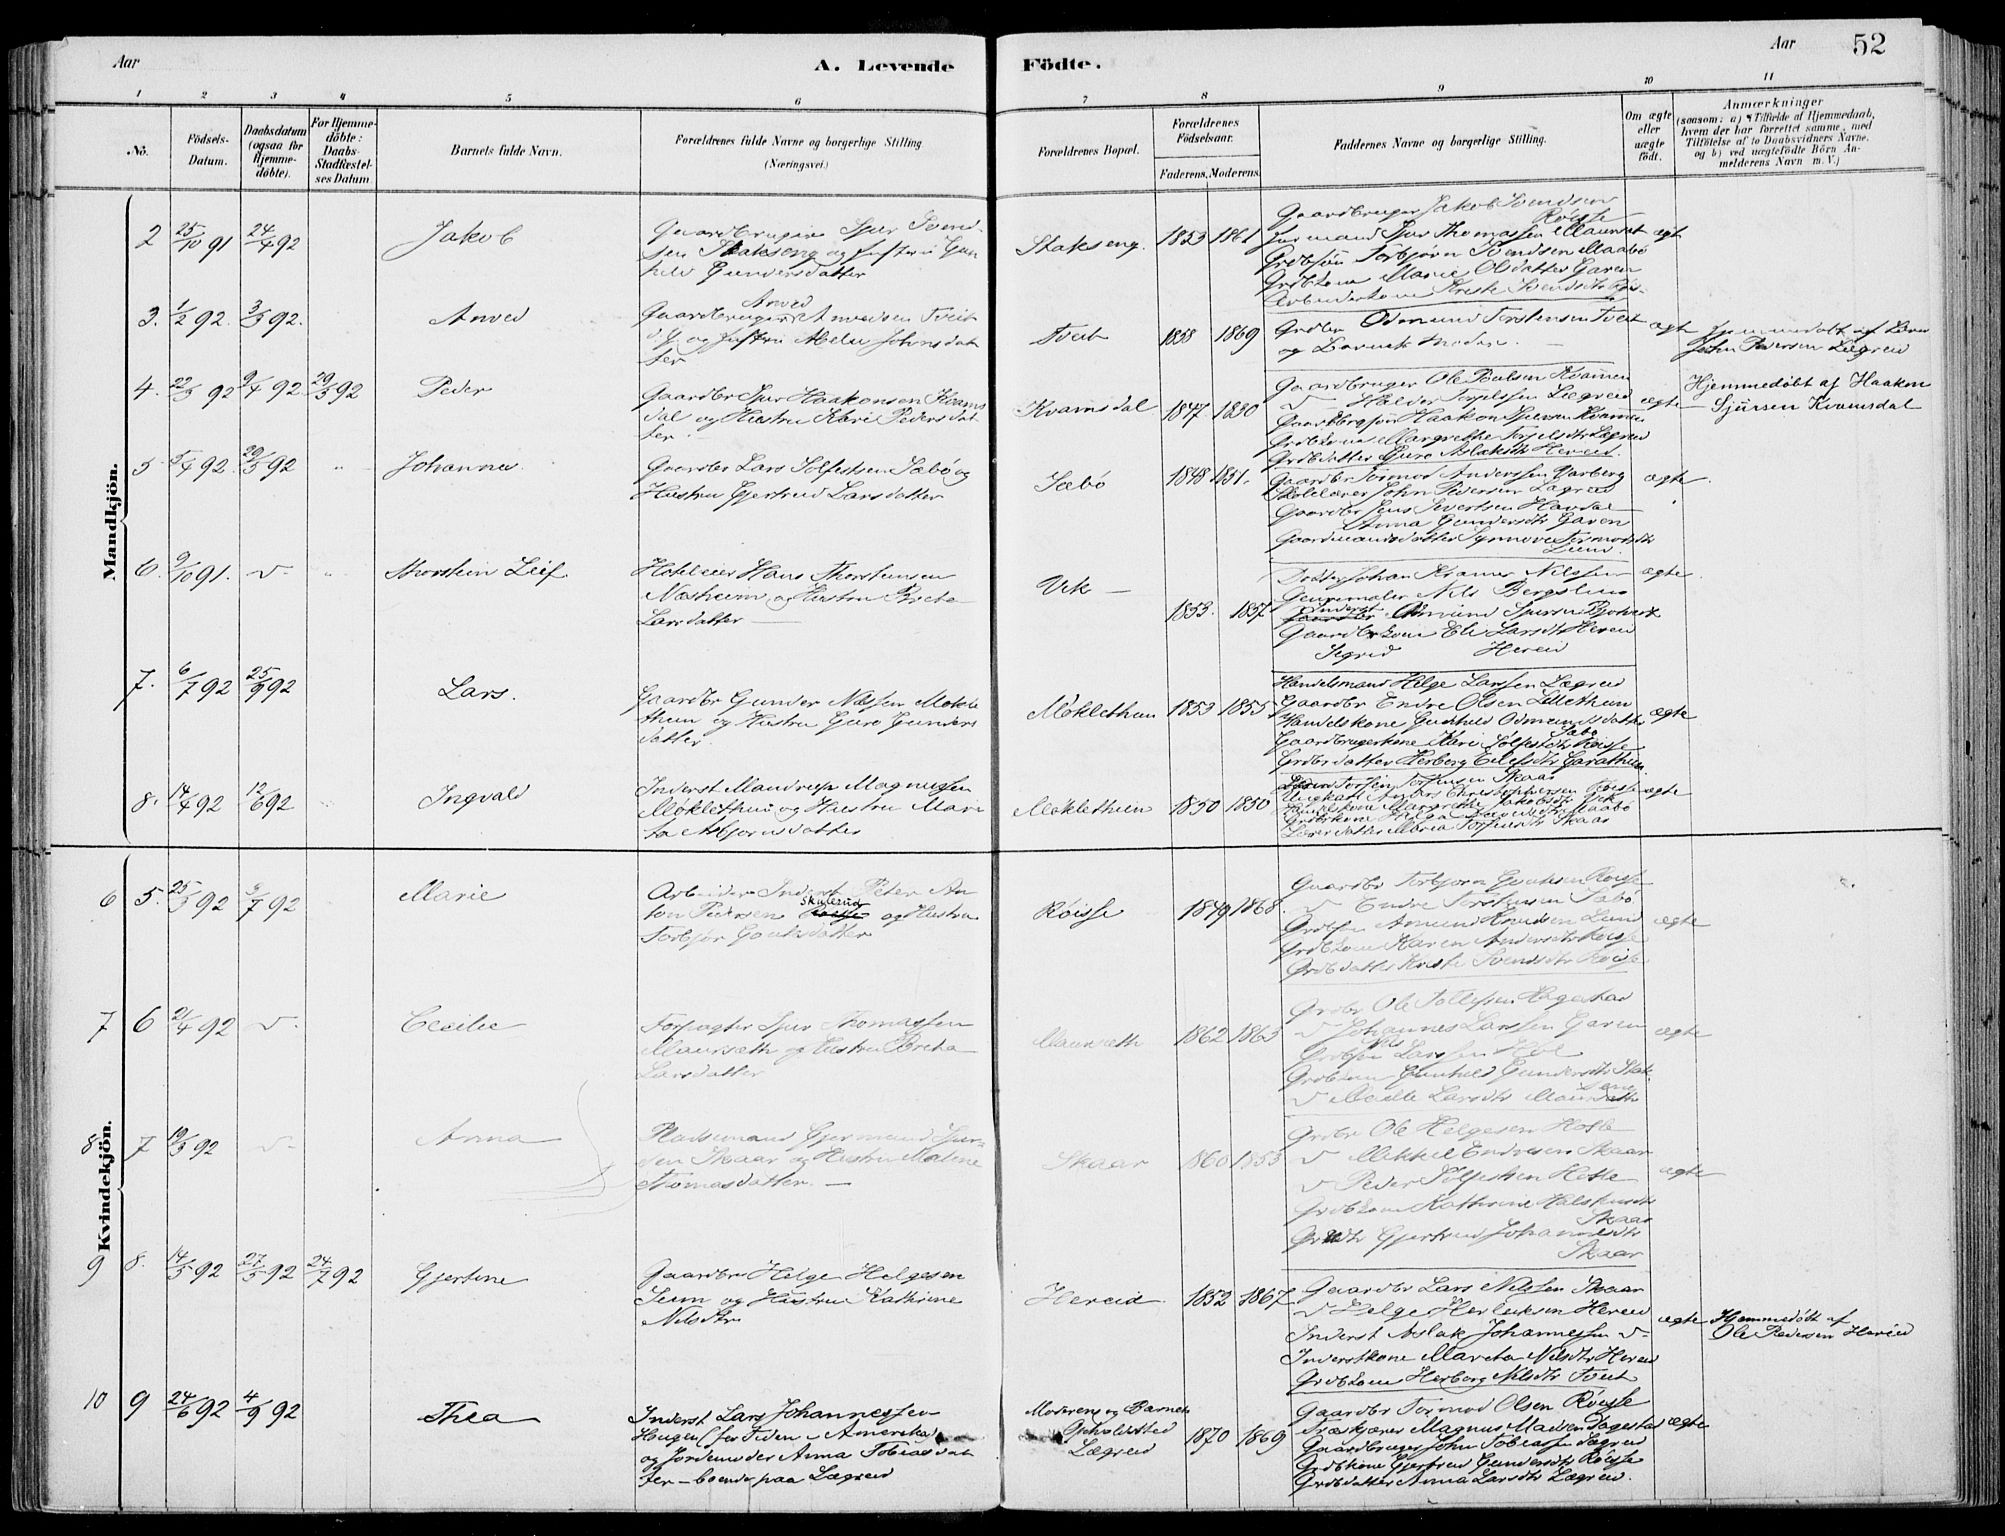 Aar
A. Levende Födte.
Aar
52
1 2 3 4 5 6 7 8 9 10 11
No.
Födsels-Datum.
Daabsdatum (ogsaa for Hjemme-döbte).
For Hjemme-döbte: Daabs-Stadfestelses Datum.
Barnets fulde Navn.
Forældrenes fulde Navne og borgerlige Stilling (Næringsvei.)
Forældrenes Bopæl.
Forældrenes Födselsaar.
Faderens. Moderens.
Faddernes Navne og borgerlige Stilling.
Om ægte eller uægte födt.
Anmærkninger
(saasom: a) Tilfælde af Hjemmedaab, hvem der har forrettet samme, med Tilföielse af to Daabsvidners Navne, og b) ved uægtefödte Börn Anmelderens Navn m. V.)
Mandkjön.
2 25/10 91 24/4 92
Jakob
Gaardbruger Sjur Svend-
sen Stakseng og Hustru Gun-
hild Gundersdatter
Stakseng. 1853 1861
Gaardbruger Jakob Svendsen
Röisse
Sjur Thomassen Maurset
Grdbsön Torbjörn Svendsen Maabö
Grdbkone Marie Olsdatter Garen
Arbeiderkone Kristi Svendsdtr
ægt
3. 1/2 92. 3/3 92.
Anved
Gaardbruger Anved Anvedsen Tveit
d. y. og Hustru Johnsdat
ter
Tveit 1858 1869
Grdbr Odmund Torstensen Tveit
og Barnets Moder. —
ægte
Hjemmedöbt af Lærer
John Pedersen Lægreid
4. 22/3 92 9/4 92 29/5 92
Peder
Gaardbr Sjur Haakonsen Kvams
dal og Hustru Kari Pedersdat
ter.
Kvamsdal 1847 1850
Gaardbruger Ole Kvamm
Haldor Torjelssen Lægreid
Haakon Sjursen Kvamm
Grdbkone Margrethe Torjelsdtr Lægreid
Grdbdatter Guro Aslaksdtr Hereid.
ægte
Hjemmedöbt af Haakon
Sjursen Kvamsdal
5 5/4 92. 29/5 92 "
Johannes.
Gaardbr Lars Solfestsen Sæbö og
Hustru Gjertrud Larsdatter
Sæbö 1848 1851.
Gaardbr Tormod Anderssen Varberg
Skolelærer John Pedersen Lægreid
Gaardbr Jens Sivertsen Havdal
Anna Gundersdtr Garen
Gaardmandsdatter Synnove Tormodsdtr
Lund
ægte.
6. 9/10 91. v. "
Thorstein Leif.
Hoteleier Hans Thorsteinsen
Næsheim og Hustru Brita
Larsdatter —
Vik — 1853. 1857
Doktor Johan Kramer Nilssen
Genremaler Nils Bergslien
Inderst Odmund Sjursen
Gaardbrkone Eli Larsdtr Hereid
Sigrid Hereid
ægte.
7. 6/7 92 25/9 92
Lars.
Gaardbr Gunder Nilssen Mökle
thun og Hustru Guro Gunders
datter.
Möklethun 1853 1855
Handelsmand Helge Larssen Lægreid
Gaardbr Endre Olsen Lillethun
Handelskone Gunhild Odmundsdatter
Sæbö
Gaardbrugerkone Kari Solfestdtr Röisse
Grdbrdatter Herborg Eilefsdtr Garathun.
ægte
8. 14/4 92 12/6 92
Ingvald
Inderst Mandrup Magnussen
Möklethun og Hustru Mari
ta Asbjörnsdatter
Möklethun 1850 1850
Lærer Torfin Torfinsen Skaar
Ungkarl Christophersen Röisse
Handelskone Margrethe Jakobsdtr Vik
Grdbkone Helga Maabö
Lærerdatter Maria Torfinsdtr Skaar
ægte
Kvindekjön.
6 5. 25/5 92 3/7 92
Marie
Arbeider Inderst Peter An
ton Pedersen Röisse Skulerud og Hustru
Torbjör Gouksdatter
Röisse 1849 1868.
Gaardbr Torbjörn Gouksen Röisse
v Endre Torstensen Sæbö
Grdbsön Amund Knudsen Lund
Grdbkone Karen Andersdtr Röisse
Grdbdatter Kristi Svendsdtr Röisse
ægte
7 6 21/4 92 v.
Cecilie
Forpagter Sjur Thomassen
Maurseth og Hustru Brita
Larsdatter
Maurseth 1862 1863
Grdbr Ole Tollefsen Hagestad
v Johannes Larssen Garen
Grdbsön Nils Larssen Hol
Grdbkone Gunhild Gundersdtr Stak
seng
v Larsdtr Maurseth
ægte
8 7 19/3 92 v
Anna
Pladsemand Gjermund Sjur-
sen Skaar og Hustru Malene
Thomasdatter. —
Skaar 1860 1853
Grdbr Ole Helgesen Hotle
v Mikkel Endresen Skaar
v Peder Solfestsen Hotle
Grdbkone Kathrine Halstensdtr
Skaar
Grdbdtr Gjertrud Johannesdtr
Skaar
ægte
9 8. 14/5 92 27/5 92 24/7 92
Gjertine
Gaardbr Helge Helgesen
Seim og Hustru Kathrine
Nilsdtr
Hereid 1852 1867
Gaardbr Lars Nilssen Skaar
v Helge Herleiksen Hereid
Inderst Aslak Johannessen v.
Inderstkone Marita Nilsdtr Hereid
Grdbkone Herborg Nilsdtr Tveit
ægte
Hjemmedöbt af
Ole Pedersen Hereid
10 9 24/6 92 4/9 92
Thea
Inderst Lars Johannessen
Haugen (for Tiden i Amerika)
og Jordemoder Anna Tobiasdat
ter — boende paa Lægreid
Moderens og Barnets
Opholdssted
Lægreid 1870 1869
Gaardbr Tormod Olsen Röisse
Træskjærer Magnus Madsen Dagestad
Gaardbruger John Tobiassen Lægreid
Grdbkone Gjertrud Gundersdtr Röisse
Grdbdatter Anna Larsdtr Lægreid.
ægte